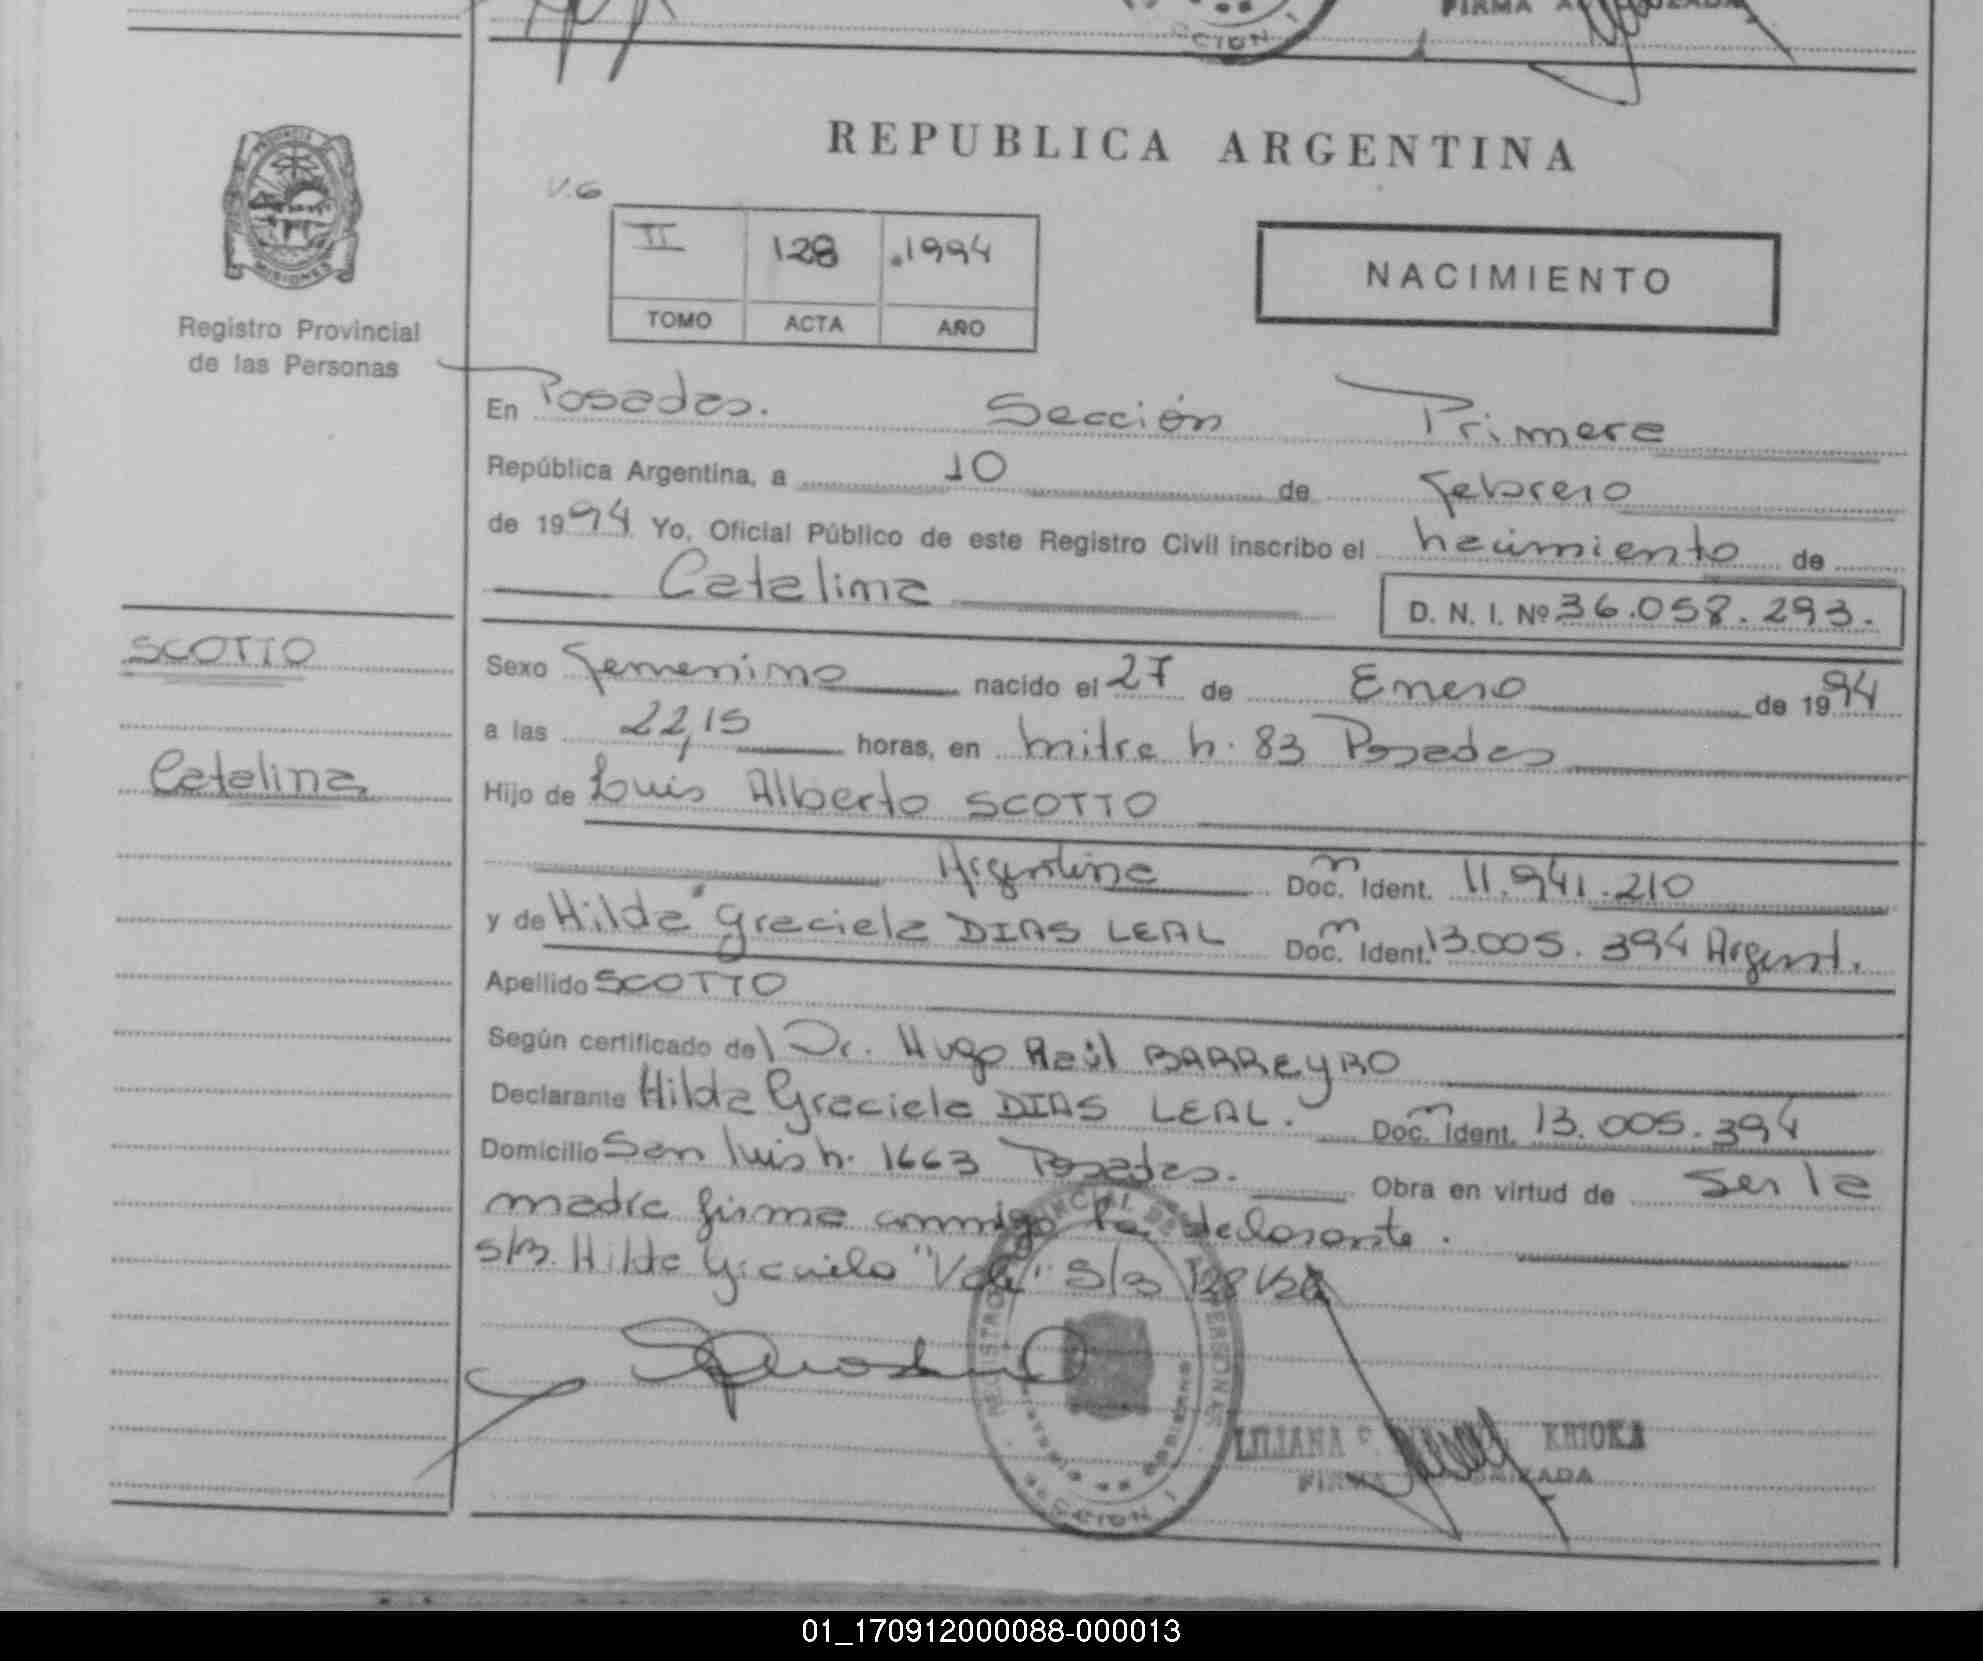 FIRMA
CCION
REPUBLICA ARGENTINA
V.G
II 128 .1994
TOMO ACTA AÑO
NACIMIENTO
MISIONES
Registro Provincial
de las Personas
En Posadas. Sección Primera
República Argentina, a 10 de Febrero
de 1994 Yo, Oficial Público de este Registro Civil inscribo el nacimiento de
Catalina
D. N. I. Nº 36.058.293.
SCOTTO
Catalina
Sexo Femenino nacido el 27 de Enero de 1994
a las 22,15 horas, en mitre n. 83 Posadas
Hijo de Luis Alberto SCOTTO
Argentina Doc. Ident. 11.941.210
y de Hilda Graciela DIAS LEAL Doc. Ident. 13.005.394 Argent.
Apellido SCOTTO
Según certificado del Dr. Hugo Raúl BARREYRO
Declarante Hilda Graciela DIAS LEAL. Doc. Ident. 13.005.394
Domicilio San Luis n. 1663 Posadas. Obra en virtud de ser la
madre firma conmigo la declarante.
s/B. Hilda Graciela "Vale" S/B
LILIANA
FIRMA
SECCION 1
01_170912000088-000013